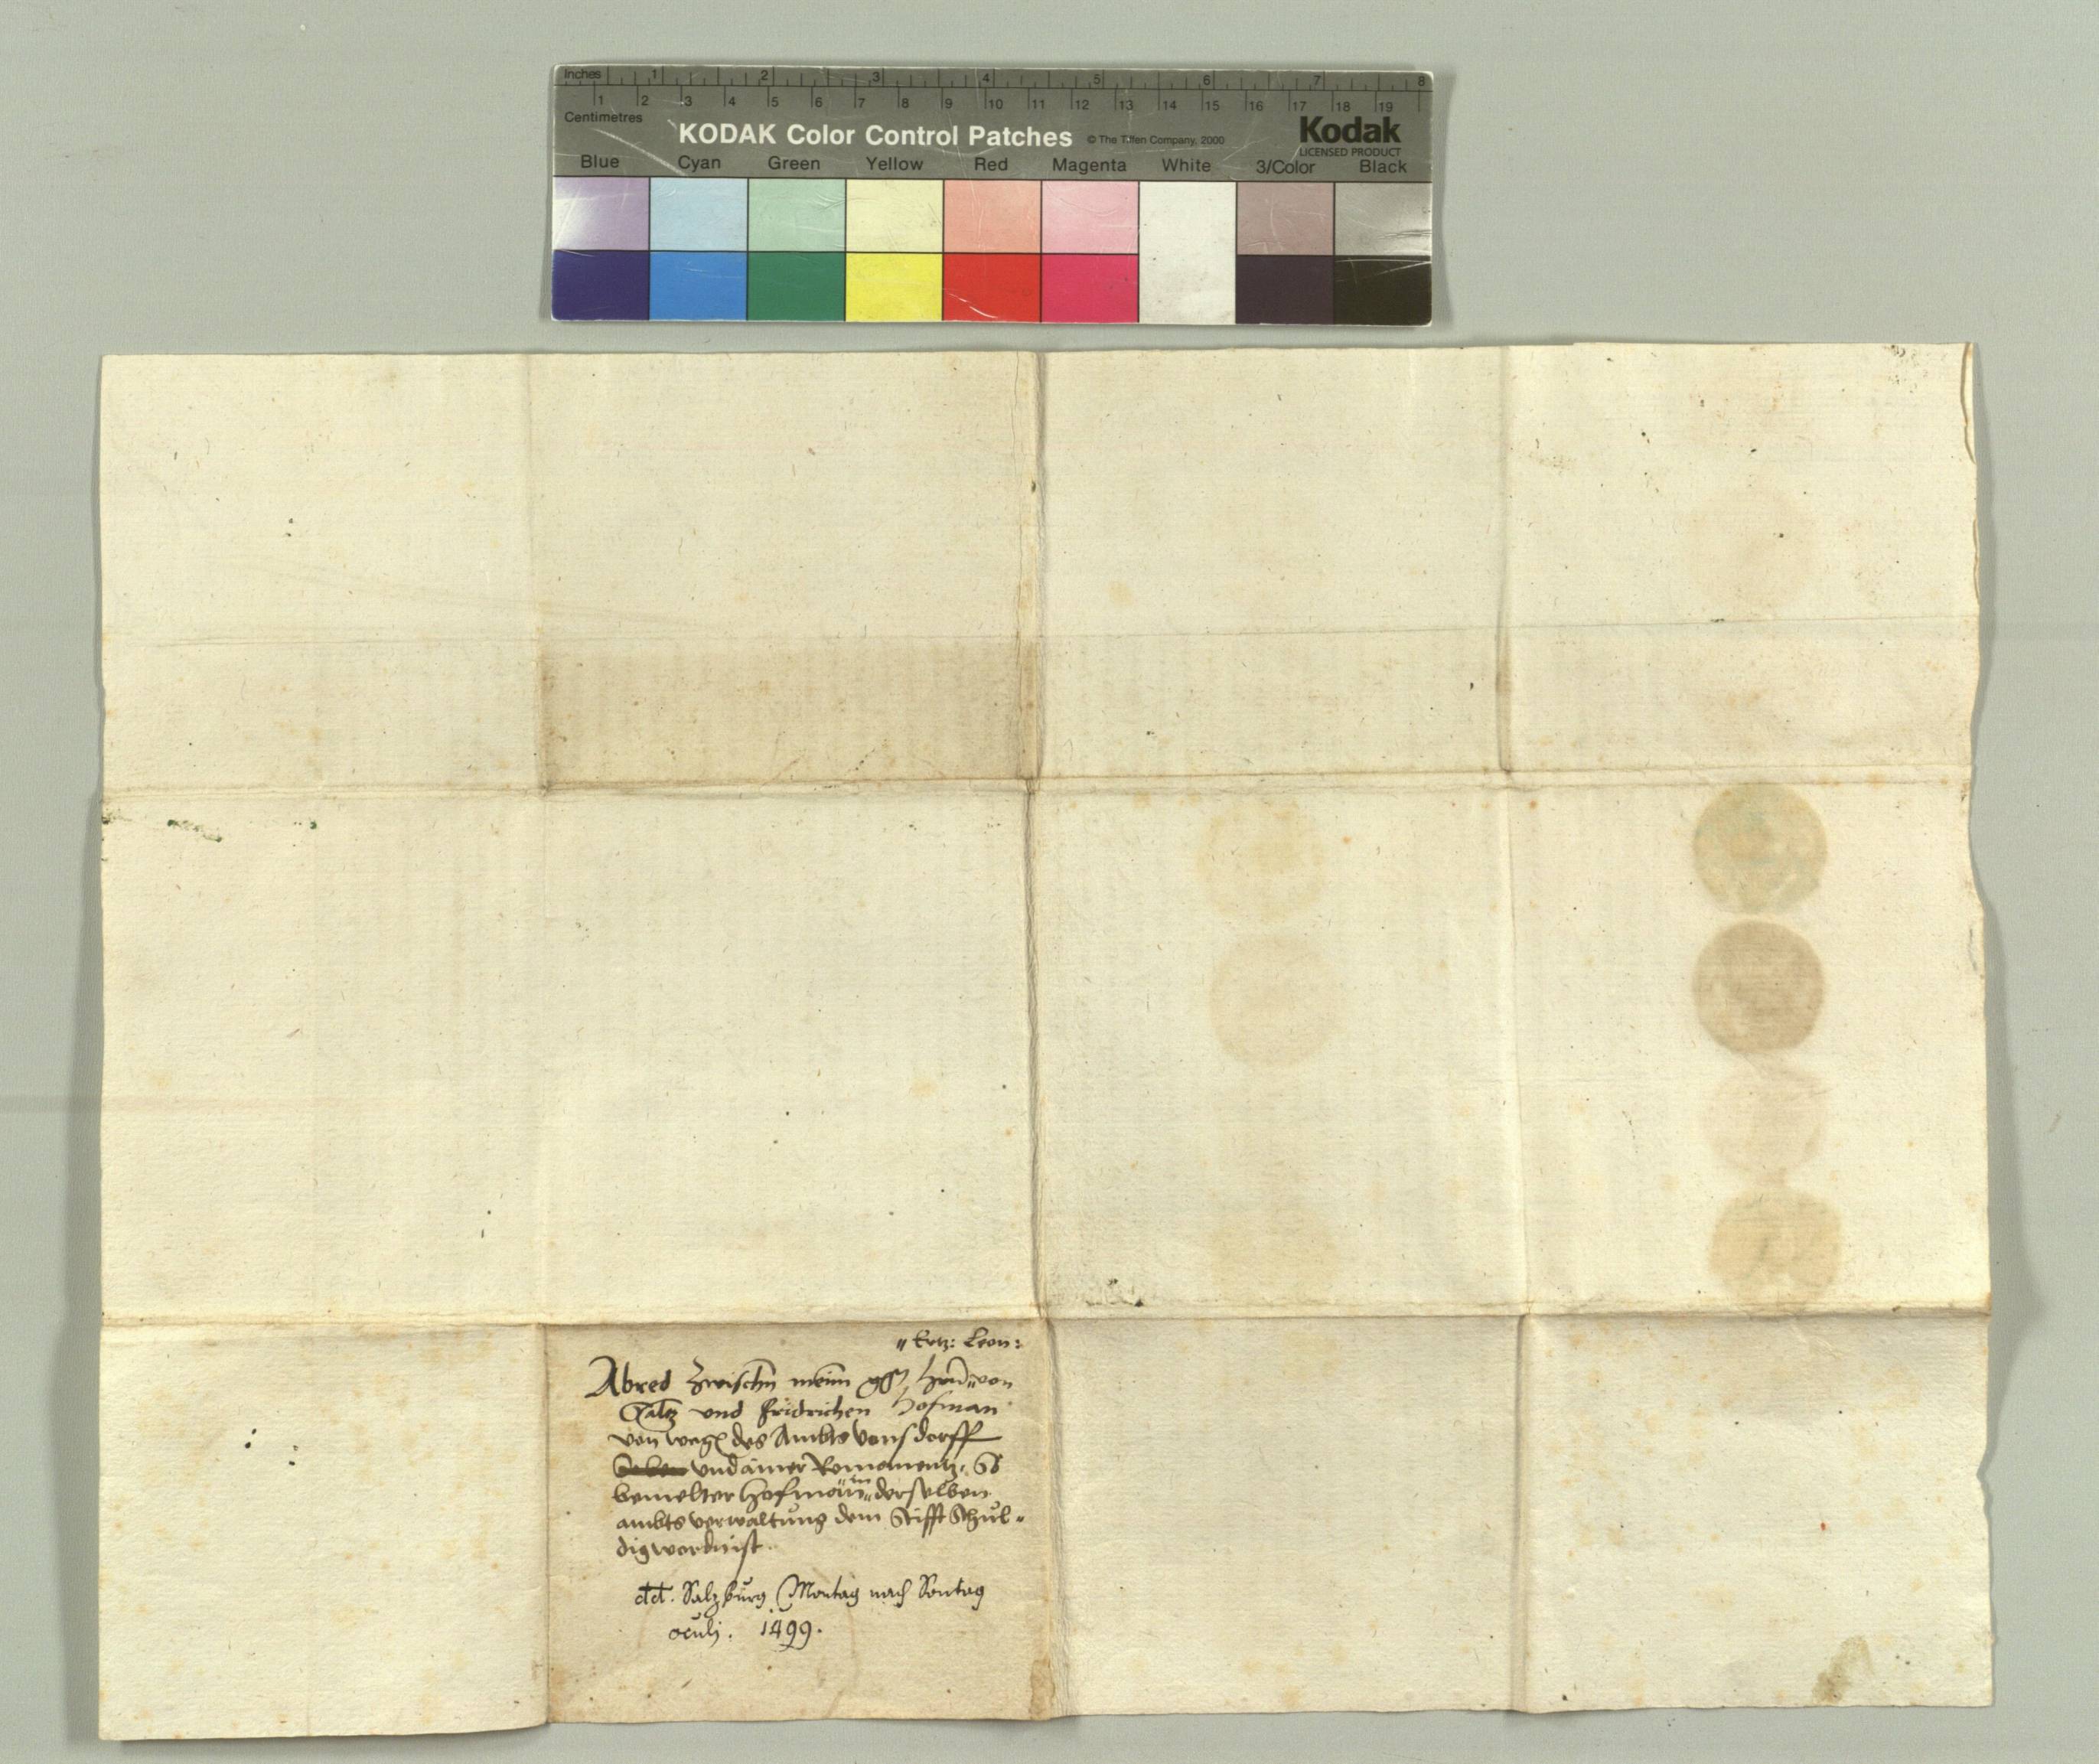 Inches 1 2 3 4 5 6 7 8
1 2 3 4 5 6 7 8 9 10 11 12 13 14 15 16 17 18 19
Centimetres
KODAK Color Control Patches © The Tiffen Company, 2000 Kodak
LICENSED PRODUCT
Blue Cyan Green Yellow Red Magenta White 3/Color Black
„ Ertz: Leon:
Abred zwischn meim ggn hern „ von
Saltz und Fridrichen Hofman
von wegen des Ambts Vonsdorff
und ainer Romanentz, So
bemelter Hofman „ in „ derselben
ambts verwaltung dem Stifft Schul„
dig wordn ist.
dd. Salzburg Montag nach Sontag
oculj. 1499.